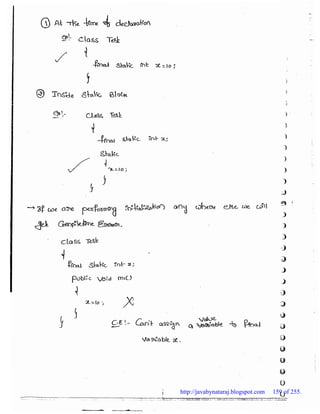 ① At the time of declaration
Ex:- class Test
{
final static int x=10;
}
② Inside static Block
Ex:- class Test
{
final static int x;
static
{
x=10;
}
}
→ If we are performing initialization any where else we will
get Compiletime Error.
class Test
{
final static int x;
public void m()
{
x=10;
}
}
C.E:- Can't assign a value to final
variable x.
http://javabynataraj.blogspot.com 159 of 255.